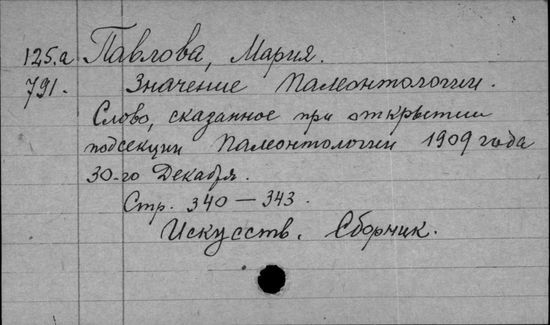 125.а Павлова, Мария.
791. Значение Палеонтологии.
Слово, сказанное при открытии
подсекции Палеонтологии 1909 года
30-го Декабря.
Стр. 340 — 343.
Искусств. Сборник.